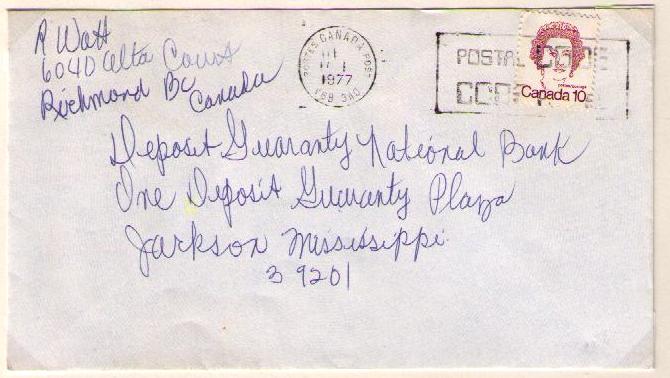 R Watt
6040 Alta Court
Richmond Bc
Canada
POSTES CANADA POST
III
1977
V6B 3A0
POSTAL CODE
CODE
Canada 10
Deposit Guaranty National Bank
One Deposit Guaranty Plaza
Jackson Mississippi
39201